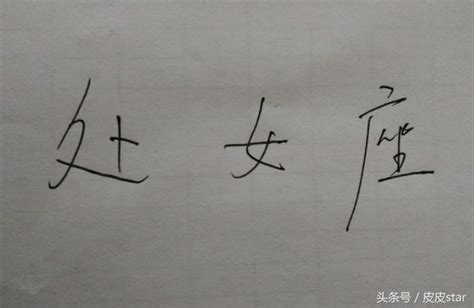 处女座
头条号 / 皮皮star